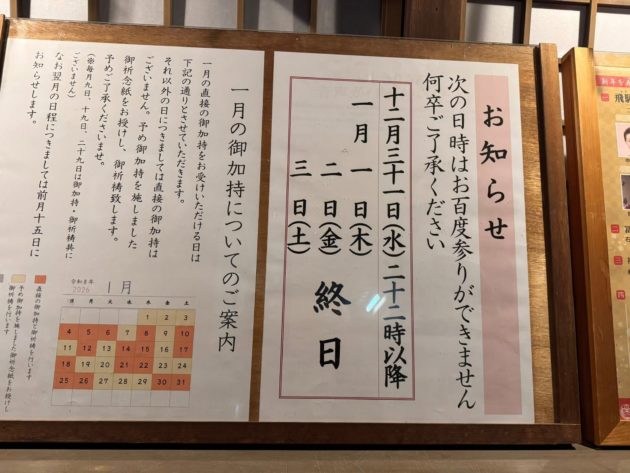 お知らせ
次の日時はお百度参りができません
何卒ご了承ください
十二月三十一日(水)二十二時以降
一月一日(木)
二日(金)終日
三日(土)
一月の御加持についてのご案内
一月の直接の御加持をお受けいただける日は
下記の通りとさせていただきます。
それ以外の日につきましては直接の御加持は
ございません。予め御加持を施しました
御祈念紙をお授けし、御祈祷致します。
予めご了承くださいませ。
(※毎月九日、十九日、二十九日は御加持・御祈祷共に
ございません)
なお翌月の日程につきましては前月十五日に
お知らせします。
令和8年
2026 1月
日 月 火 水 木 金 土
1 2 3
4 5 6 7 8 9 10
11 12 13 14 15 16 17
18 19 20 21 22 23 24
25 26 27 28 29 30 31
直接の御加持と御祈祷を行います
予め御加持を施しました御祈念紙をお授けし
御祈祷を行います
新年を
飛騨